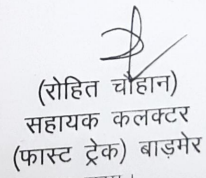 (रोहित चौहान)
सहायक कलक्टर
(फास्ट ट्रेक) बाड़मेर